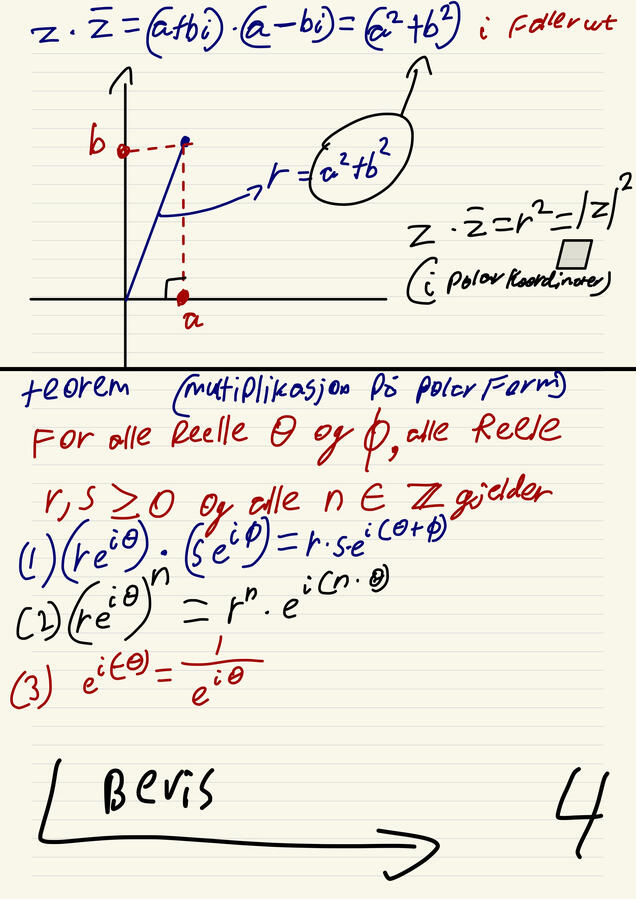 z · z̄ = (a+bi) · (a−bi) = (a²+b²) i faller ut
b
r = a²+b²
z · z̄ = r² = |z|²
(i polarkoordinater)
a
teorem (multiplikasjon på polar Form)
For alle Reelle θ og ϕ, alle Reelle
r, s ≥ 0 og alle n ∈ ℤ gjelder
(1) (re^{iθ}) · (se^{iϕ}) = r·s·e^{i(θ+ϕ)}
(2) (re^{iθ})^n = r^n · e^{i(n·θ)}
(3) e^{i(-θ)} = 1/e^{iθ}
Bevis
4